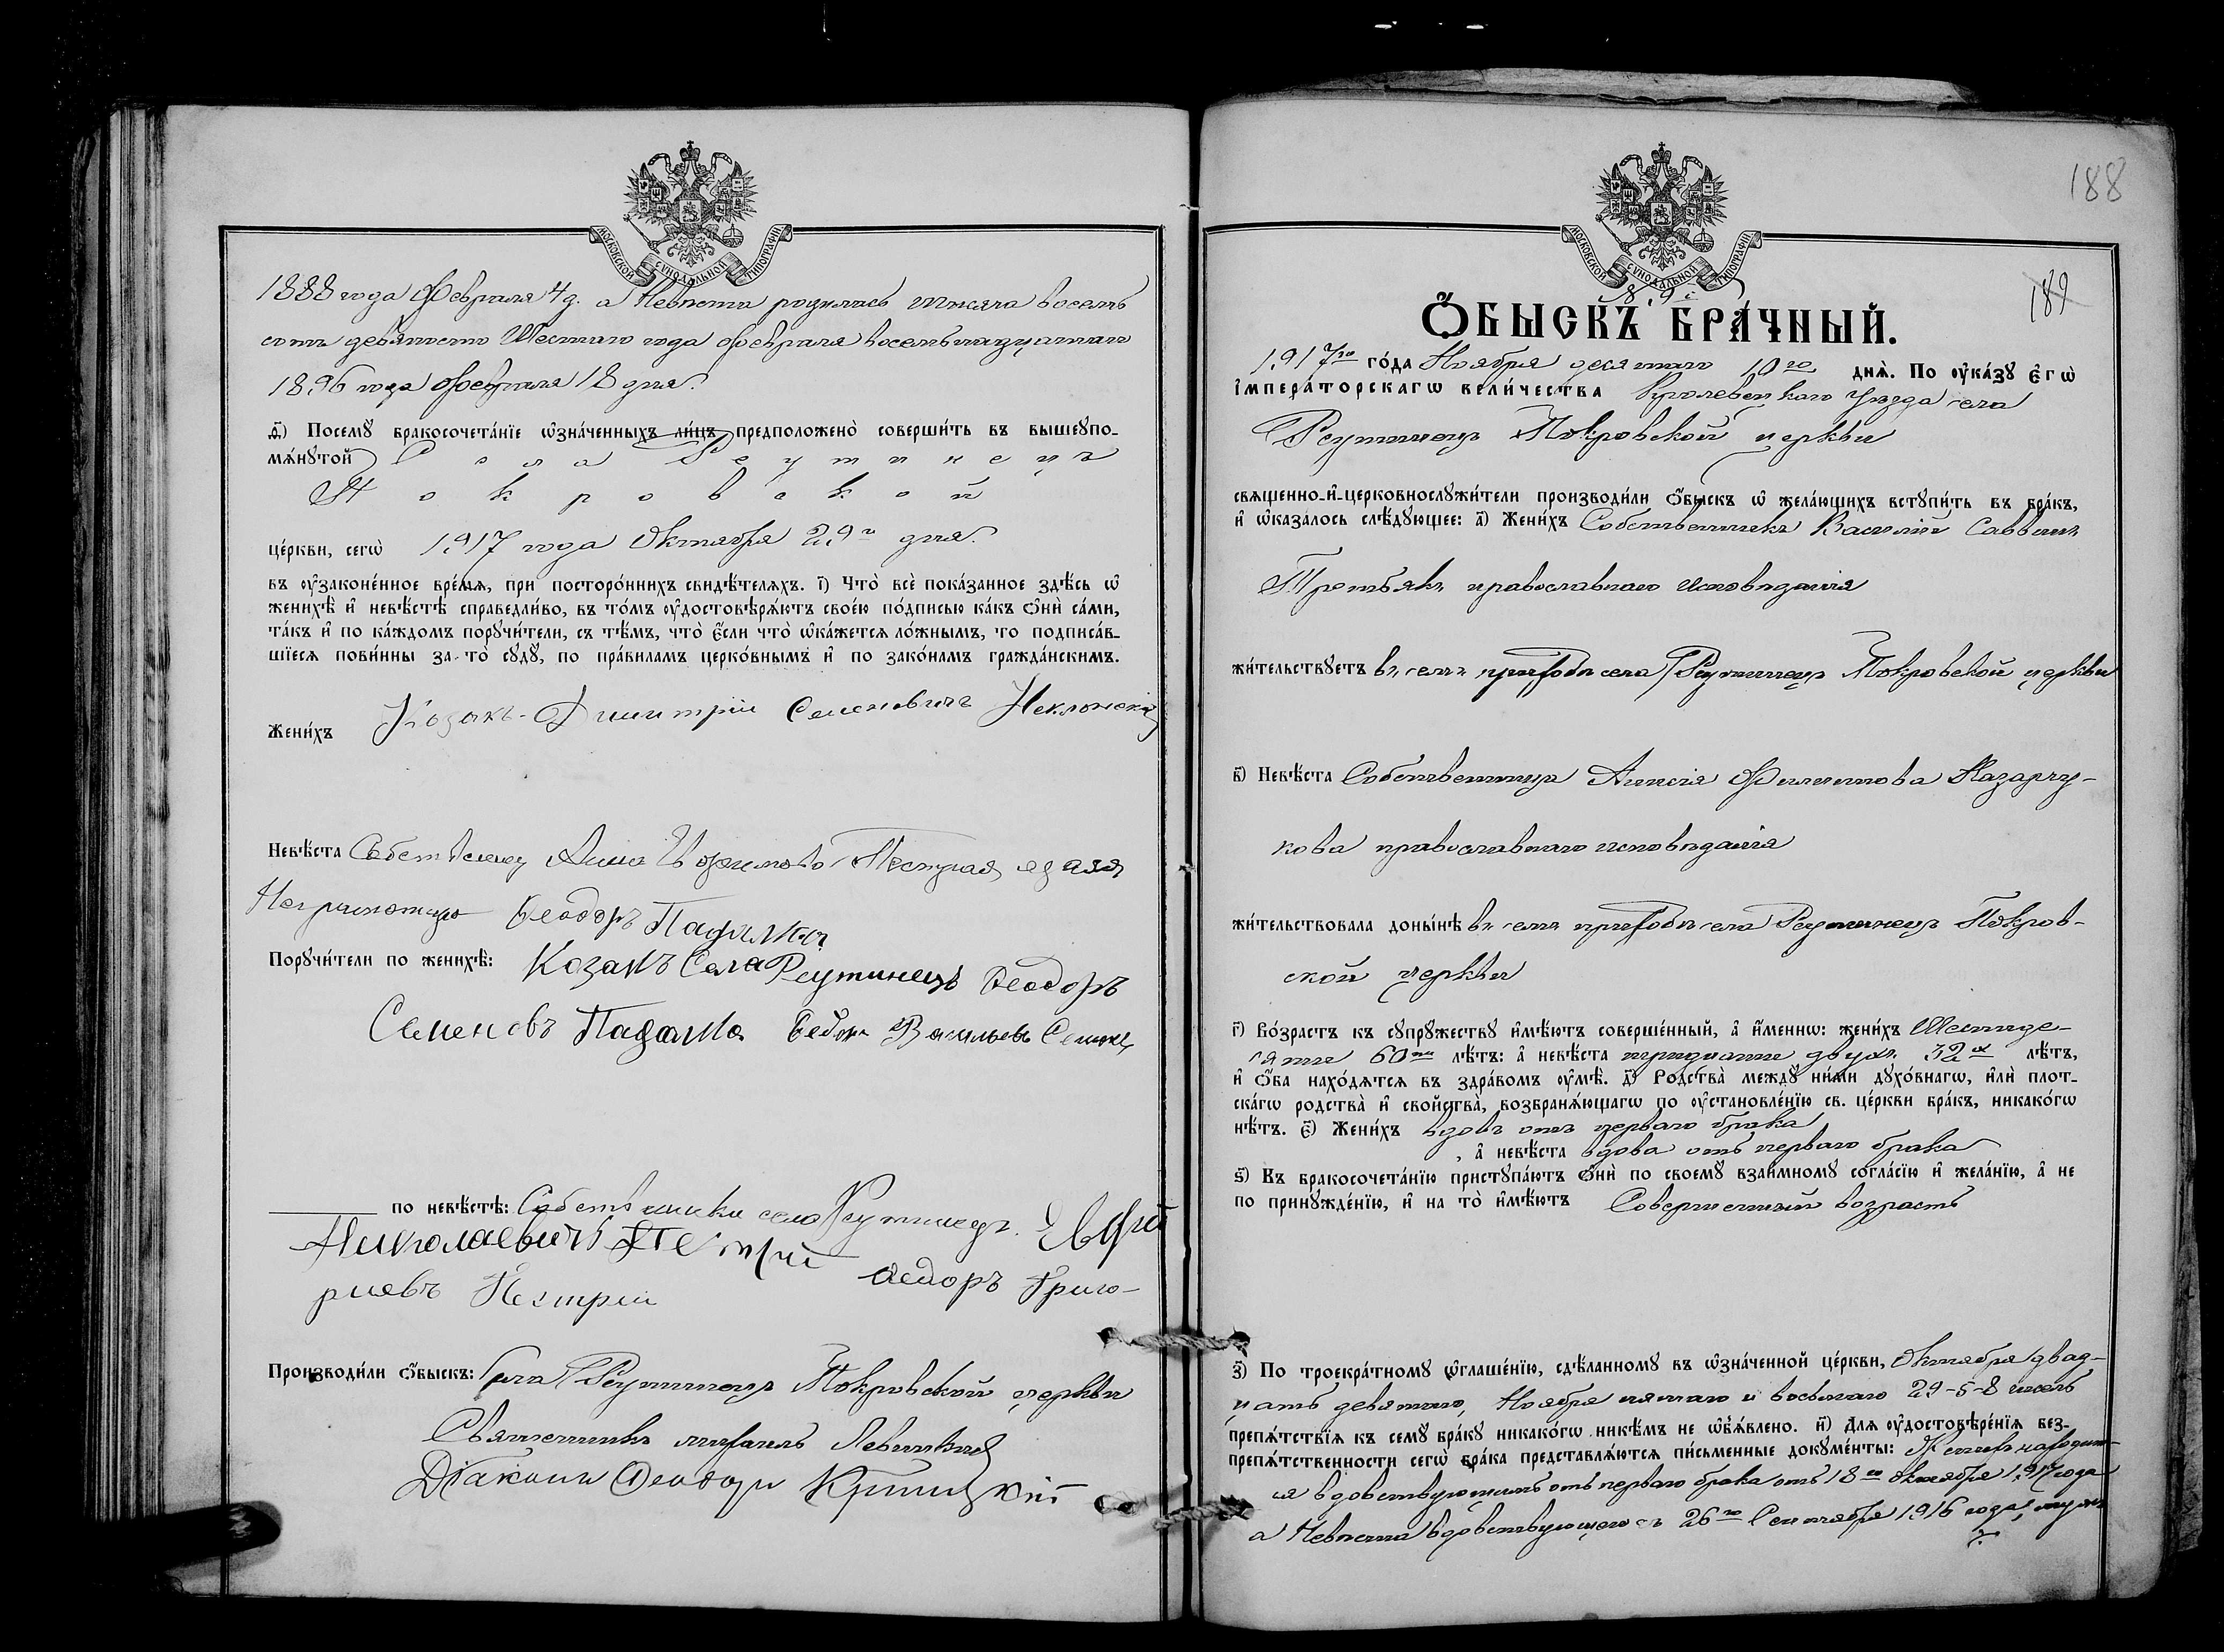 МОСКОВСКОЙ СѴНОДАЛЬНОЙ ТИПОГРАФІИ
1888 года Февраля 4 д. а Невѣста родилась тысяча восемь
сотъ девяносто Шестого года февраля восемнадцатаго
1896 года февраля 18 дня.
ѳ҃) Посемꙋ̀ бракосочета́нїе ѡ҆зна́ченныхъ ли́цъ предположено̀ соверши́ть въ вышеꙋпо-
мѧ́нꙋтой Села Реутинецъ
Покровской
це́ркви, сегѡ̀ 1917 года Октября 29 го дня.
въ ᲂу҆законе́нное вре́мѧ, при посторо́ннихъ свидѣ́телѧхъ. і҃) Что̀ всѐ пока́занное здѣ́сь ѡ҆
женихѣ̀ и҆ невѣ́стѣ справедли́во, въ то́мъ ᲂу҆достовѣрѧ́ютъ свое́ю по́дписью ка́къ ѻ҆нѝ са́ми,
та́къ и҆ по ка́ждомъ порꙋчи́тели, съ тѣ́мъ, что̀ є҆́сли что̀ ѡ҆ка́жетсѧ ло́жнымъ, то подписа́в-
шїесѧ пови́нны за то̀ сꙋдꙋ̀, по пра́виламъ церко́внымъ и҆ по зако́намъ гражда́нскимъ.
Жени́хъ Козакъ Димитрій Семеновичъ Неклонскій
Невѣ́ста Анна
Неграмотную Ѳеодоръ Падалка
Порꙋчи́тели по женихѣ̀: Козакъ Села Реутинецъ Ѳеодоръ
Семеновъ Падалка Ѳедоръ Васильевъ
по невѣ́стѣ: Собственники села Реутинецъ
Николаевичъ Пестрий Ѳедоръ Григо-
риевъ Пестрий
Производи́ли ѻ҆́быскъ: Села Реутинецъ Покровской церкви
Священникъ Михаилъ Левицкій
Діаконъ Ѳеодоръ Криницкій
188
МОСКОВСКОЙ СѴНОДАЛЬНОЙ ТИПОГРАФІИ
189
Ѻ҆́БЫСКЪ БРА́ЧНЫЙ.
1917 го го́да Ноября десятаго 10 го днѧ̀. По ᲂу҆ка́зꙋ Є҆гѡ̀
І҆мпера́торскагѡ Вели́чества Кролевецкаго уѣзда села
Реутинецъ Покровской церкви
свѧще́нно-и҆-церковнослꙋжи́тели производи́ли ѻ҆́быскъ ѡ҆ жела́ющихъ встꙋпи́ть въ бра́къ,
и҆ ѡ҆каза́лось слѣ́дꙋющее: а҃) Жени́хъ Собственникъ Василій Саввинъ
Третьякъ православнаго исповѣданія
жи́тельствꙋетъ въ селѣ приходѣ села Реутинецъ Покровской церкви
в҃) Невѣ́ста Собственница Филиппова Назарчу-
кова православнаго исповѣданія
жи́тельствовала доны́нѣ въ селѣ приходѣ села Реутинецъ Покров-
ской церкви
г҃) Во́зрастъ къ сꙋпрꙋ́жествꙋ и҆мѣ́ютъ соверше́нный, а҆ и҆́меннѡ: жени́хъ Шестиде-
сяти 60 ти лѣ́тъ: а҆ невѣ́ста тридцати двухъ 32 х лѣ́тъ,
и҆ ѻ҆́ба нахо́дѧтсѧ въ здра́вомъ ᲂу҆мѣ̀. д҃) Родства̀ междꙋ̀ ни́ми дꙋхо́внагѡ, и҆лѝ плот-
ска́гѡ родства̀ и҆ свойства̀, возбранѧ́ющагѡ по ᲂу҆становле́нїю св. це́ркви бра́къ, никако́гѡ
нѣ́тъ. є҃) Жени́хъ вдовъ отъ перваго брака
, а҆ невѣ́ста вдова отъ перваго брака
ѕ҃) Въ бракосочета́нїю пристꙋпа́ютъ ѻ҆нѝ по своемꙋ̀ взаи́мномꙋ согла́сїю и҆ жела́нїю, а҆ не
по принꙋжде́нїю, и҆ на то̀ и҆мѣ́ютъ Совершенный возрастъ
з҃) По троекра́тномꙋ ѡ҆глаше́нїю, сдѣ́ланномꙋ въ ѡ҆зна́ченной це́ркви, Октября двад-
цать девятаго, Ноября пятаго и восьмаго 29-5-8 числъ
препѧ́тствїѧ къ семꙋ̀ бра́кꙋ никако́гѡ никѣ́мъ не ѡ҆б̾ѧ́влено. и҃) Длѧ ᲂу҆достовѣре́нїѧ без-
препѧ́тственности сегѡ̀ бра́ка представлѧ́ютсѧ пи́сьменные докꙋме́нты: Женихъ находит-
ся вдовствующимъ отъ перваго брака отъ 18 го октября 1917 года
а Невѣста вдовствующею съ 26 го Сентября 1916 года,